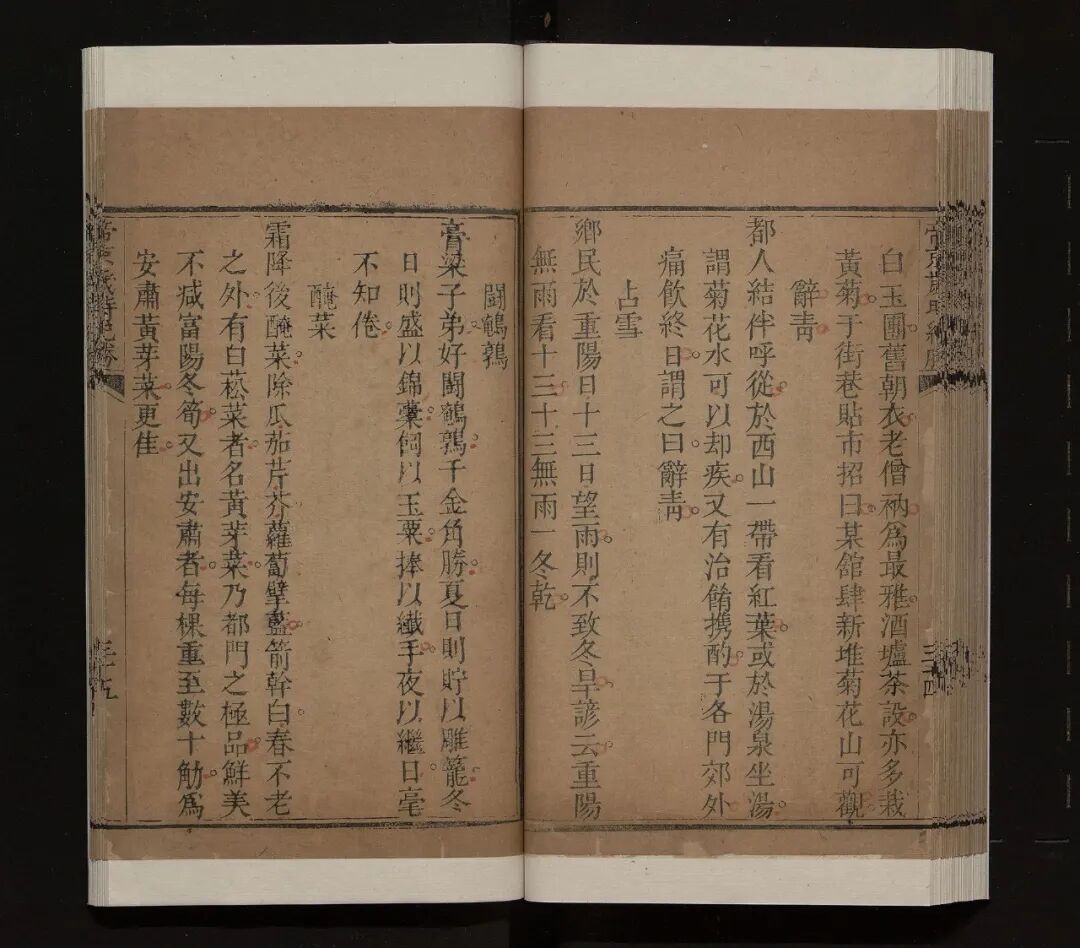 白玉團舊朝衣老僧衲爲最雅酒壚茶設亦多栽
黃菊于街巷貼市招曰某館肆新堆菊花山可觀
辭青
都人結伴呼從於西山一帶看紅葉或於湯泉坐湯
謂菊花水可以却疾又有治餚携酌于各門郊外
痛飲終日謂之曰辭青
占雪
鄉民於重陽日十三日望雨則不致冬旱諺云重陽
無雨看十三十三無雨一冬乾
鬭鵪鶉
膏粱子弟好鬭鵪鶉千金角勝夏日則貯以雕籠冬
日則盛以錦囊飼以玉粟捧以纖手夜以繼日毫
不知倦
醃菜
霜降後醃菜除瓜茄芹芥蘿蔔擘藍箭幹白春不老
之外有白菘菜者名黃芽菜乃都門之極品鮮美
不减富陽冬筍又出安肅者每棵重至數十觔爲
安肅黃芽菜更佳